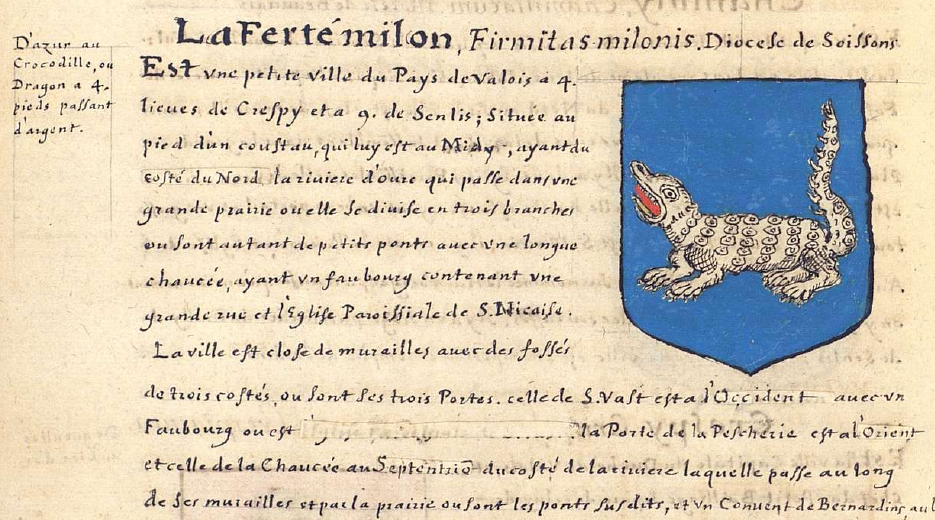 La Ferté milon, Firmitas milonis. Diocese de Soissons
D'azur au
Crocodille, ou
Dragon a 4.
pieds passant
d'argent.
Est vne petite ville du Pays de Valois a 4.
lieues de Crespy et a 9. de Senlis; Située au
pied d'un coustau, qui luy est au Midy, ayant du
costé du Nord la riviere d'ourc qui passe dans vne
grande prairie ou elle se divise en trois branches
ou sont autant de petits ponts auec vne longue
chaucée, ayant vn faubourg contenant vne
grande rue et l'Eglise Paroissiale de S. Nicaise.
La ville est close de murailles auec des fossés
de trois costés, ou sont ses trois Portes. celle de S. Vast est a l'Occident auec vn
Faubourg ou est la Porte de la Pescherie est a l'Orient
et celle de la Chaucée au Septentrio du costé de la riviere laquelle passe au long
de ses murailles et par la prairie ou sont les ponts susdits, et vn Convent de Bernardins, au